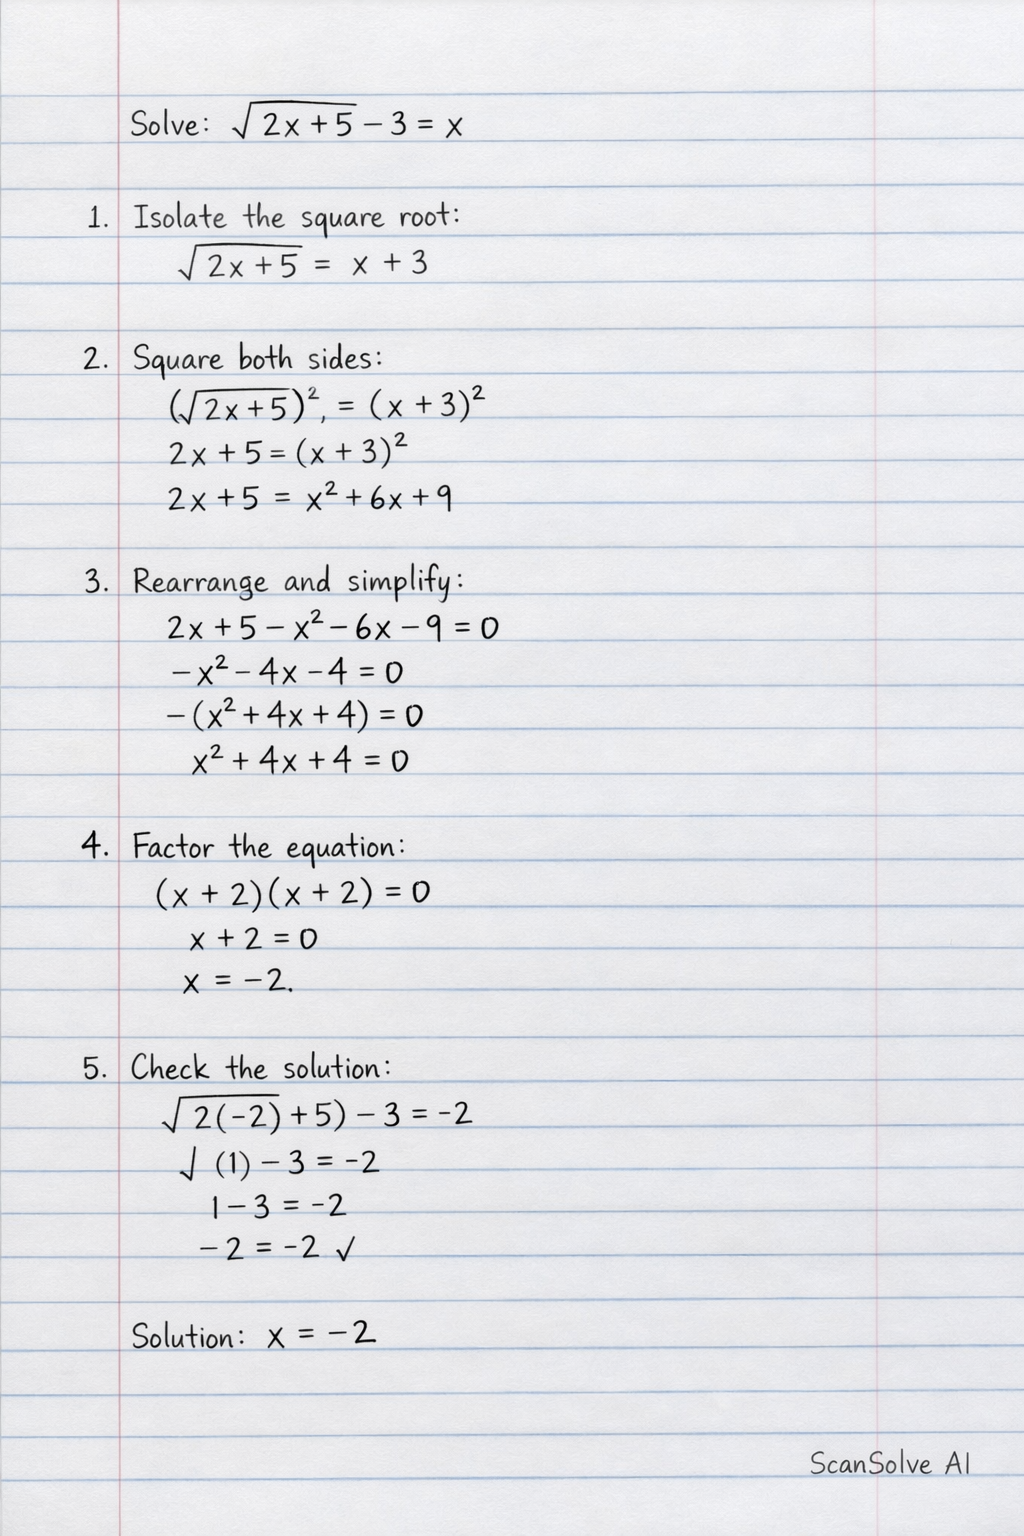 Solve: √2x + 5 − 3 = x
1. Isolate the square root:
√2x + 5 = x + 3
2. Square both sides:
(√2x + 5)², = (x + 3)²
2x + 5 = (x + 3)²
2x + 5 = x² + 6x + 9
3. Rearrange and simplify:
2x + 5 − x² − 6x − 9 = 0
−x² − 4x − 4 = 0
−(x² + 4x + 4) = 0
x² + 4x + 4 = 0
4. Factor the equation:
(x + 2)(x + 2) = 0
x + 2 = 0
x = −2.
5. Check the solution:
√2(-2) + 5) − 3 = -2
√(1) − 3 = -2
1 − 3 = -2
−2 = -2 ✓
Solution: x = −2
ScanSolve AI